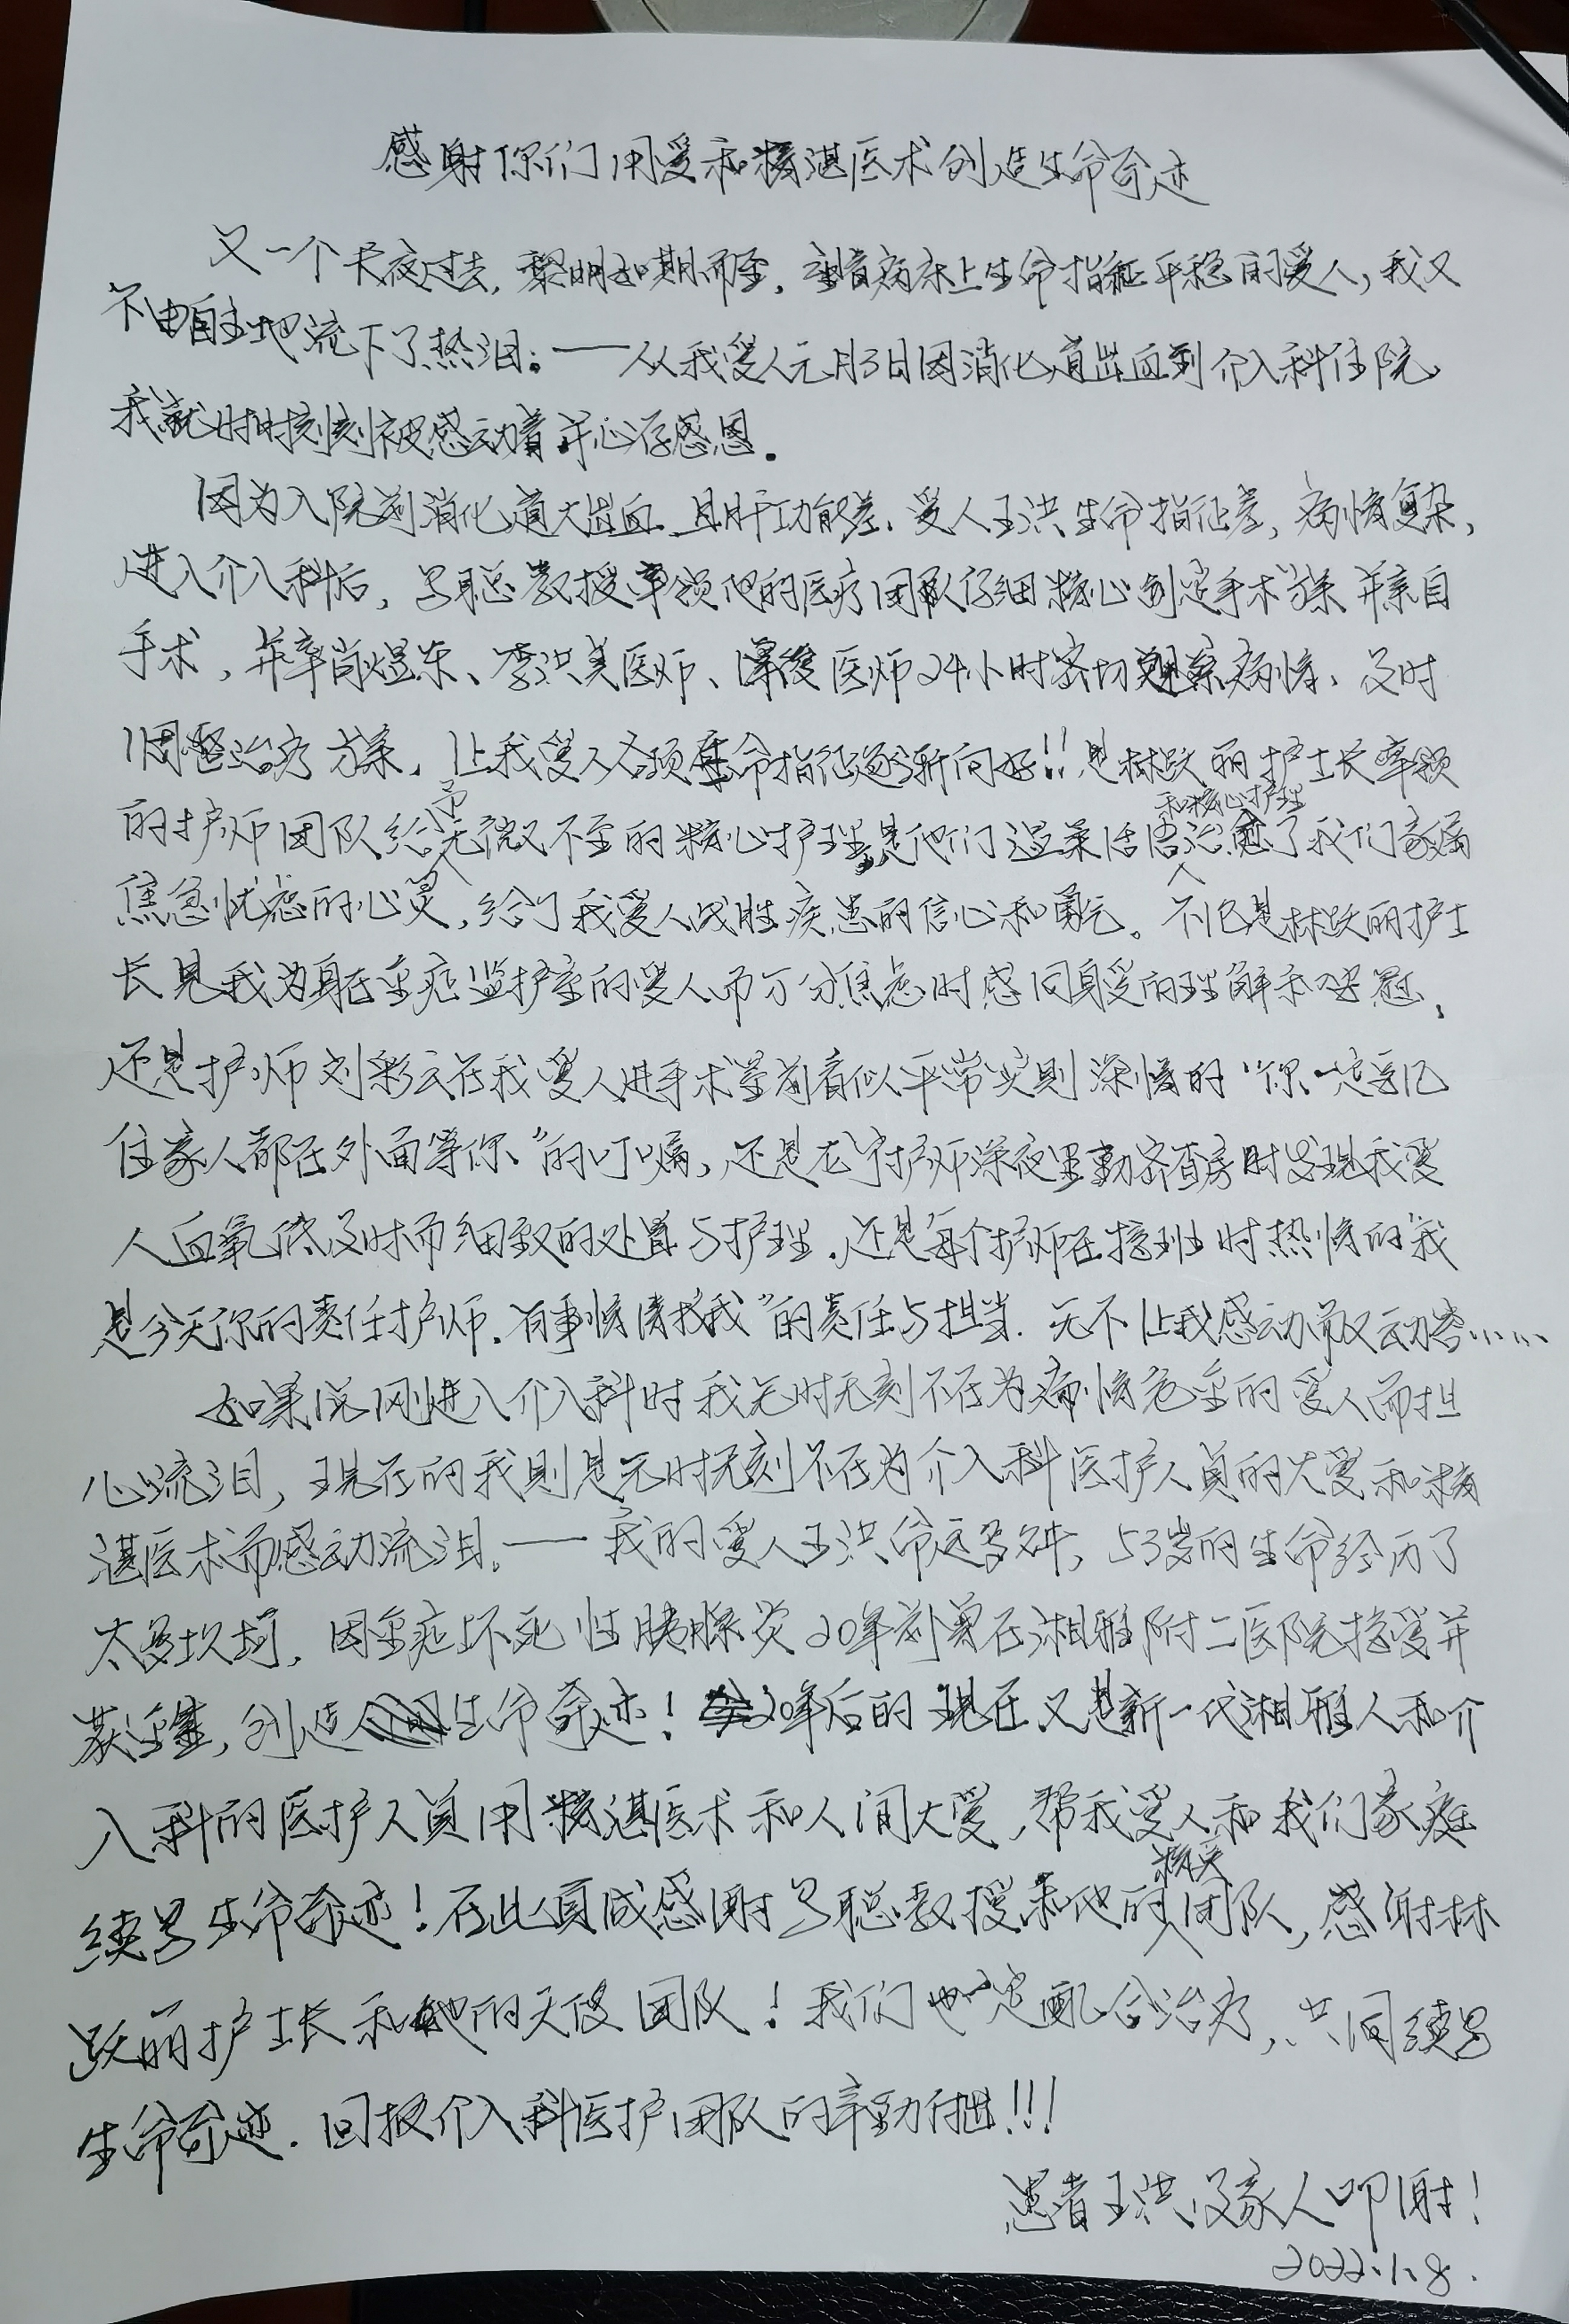 感谢你们用爱和精湛医术创造生命奇迹
又一个长夜过去,黎明如期而至,看着病床上生命指征平稳的爱人,我又
不由自主地流下了热泪。——从我爱人元月3日因消化道出血到介入科住院
我就时时刻刻被感动着并心存感恩。
因为入院前消化道大出血,且肝功能差,爱人王洪生命指征差,病情复杂,
进入介入科后,马聪教授率领他的医疗团队仔细精心制定手术方案并亲自
手术,并率肖煜东、李洪美医师、谭俊医师24小时密切观察病情,及时
调整治疗方案,让我爱人各项生命指征逐渐向好!!是林跃丽护士长率领
的护师团队给予无微不至的精心护理,是他们温柔话语和精心护理治愈了我们家属
焦急忧虑的心灵,给了我爱人战胜疾患的信心和勇气。不仅是林跃丽护士
长见我为身在重症监护室的爱人而万分焦虑时感同身受的理解和安慰,
还是护师刘彩云在我爱人进手术室前看似平常实则深情的“你一定记
住家人都在外面等你”的叮嘱,还是护师深夜里勤密查房时发现我爱
人血氧低及时而细致的处置与护理,还是每个护师在接班时热情的“我
是今天你的责任护师,有事情请找我”的责任与担当,无不让我感动而又动容……
如果说刚进入介入科时我无时无刻不在为病情危重的爱人而担
心流泪,现在的我则是无时无刻不在为介入科医护人员的大爱和精
湛医术而感动流泪。——我的爱人王洪命运多舛,53岁的生命经历了
太多坎坷,因重症坏死性胰腺炎20年前曾在湘雅附二医院接受并
获重生,创造生命奇迹!20年后的现在又是新一代湘雅人和介
入科的医护人员用精湛医术和人间大爱,帮我爱人和我们家庭
续写生命奇迹!在此真诚感谢马聪教授和他的精英团队,感谢林
跃丽护士长和她的天使团队!我们也一定配合治疗,共同续写
生命奇迹,回报介入科医护团队的辛勤付出!!!
患者王洪及家人叩谢!
2022.1.8.